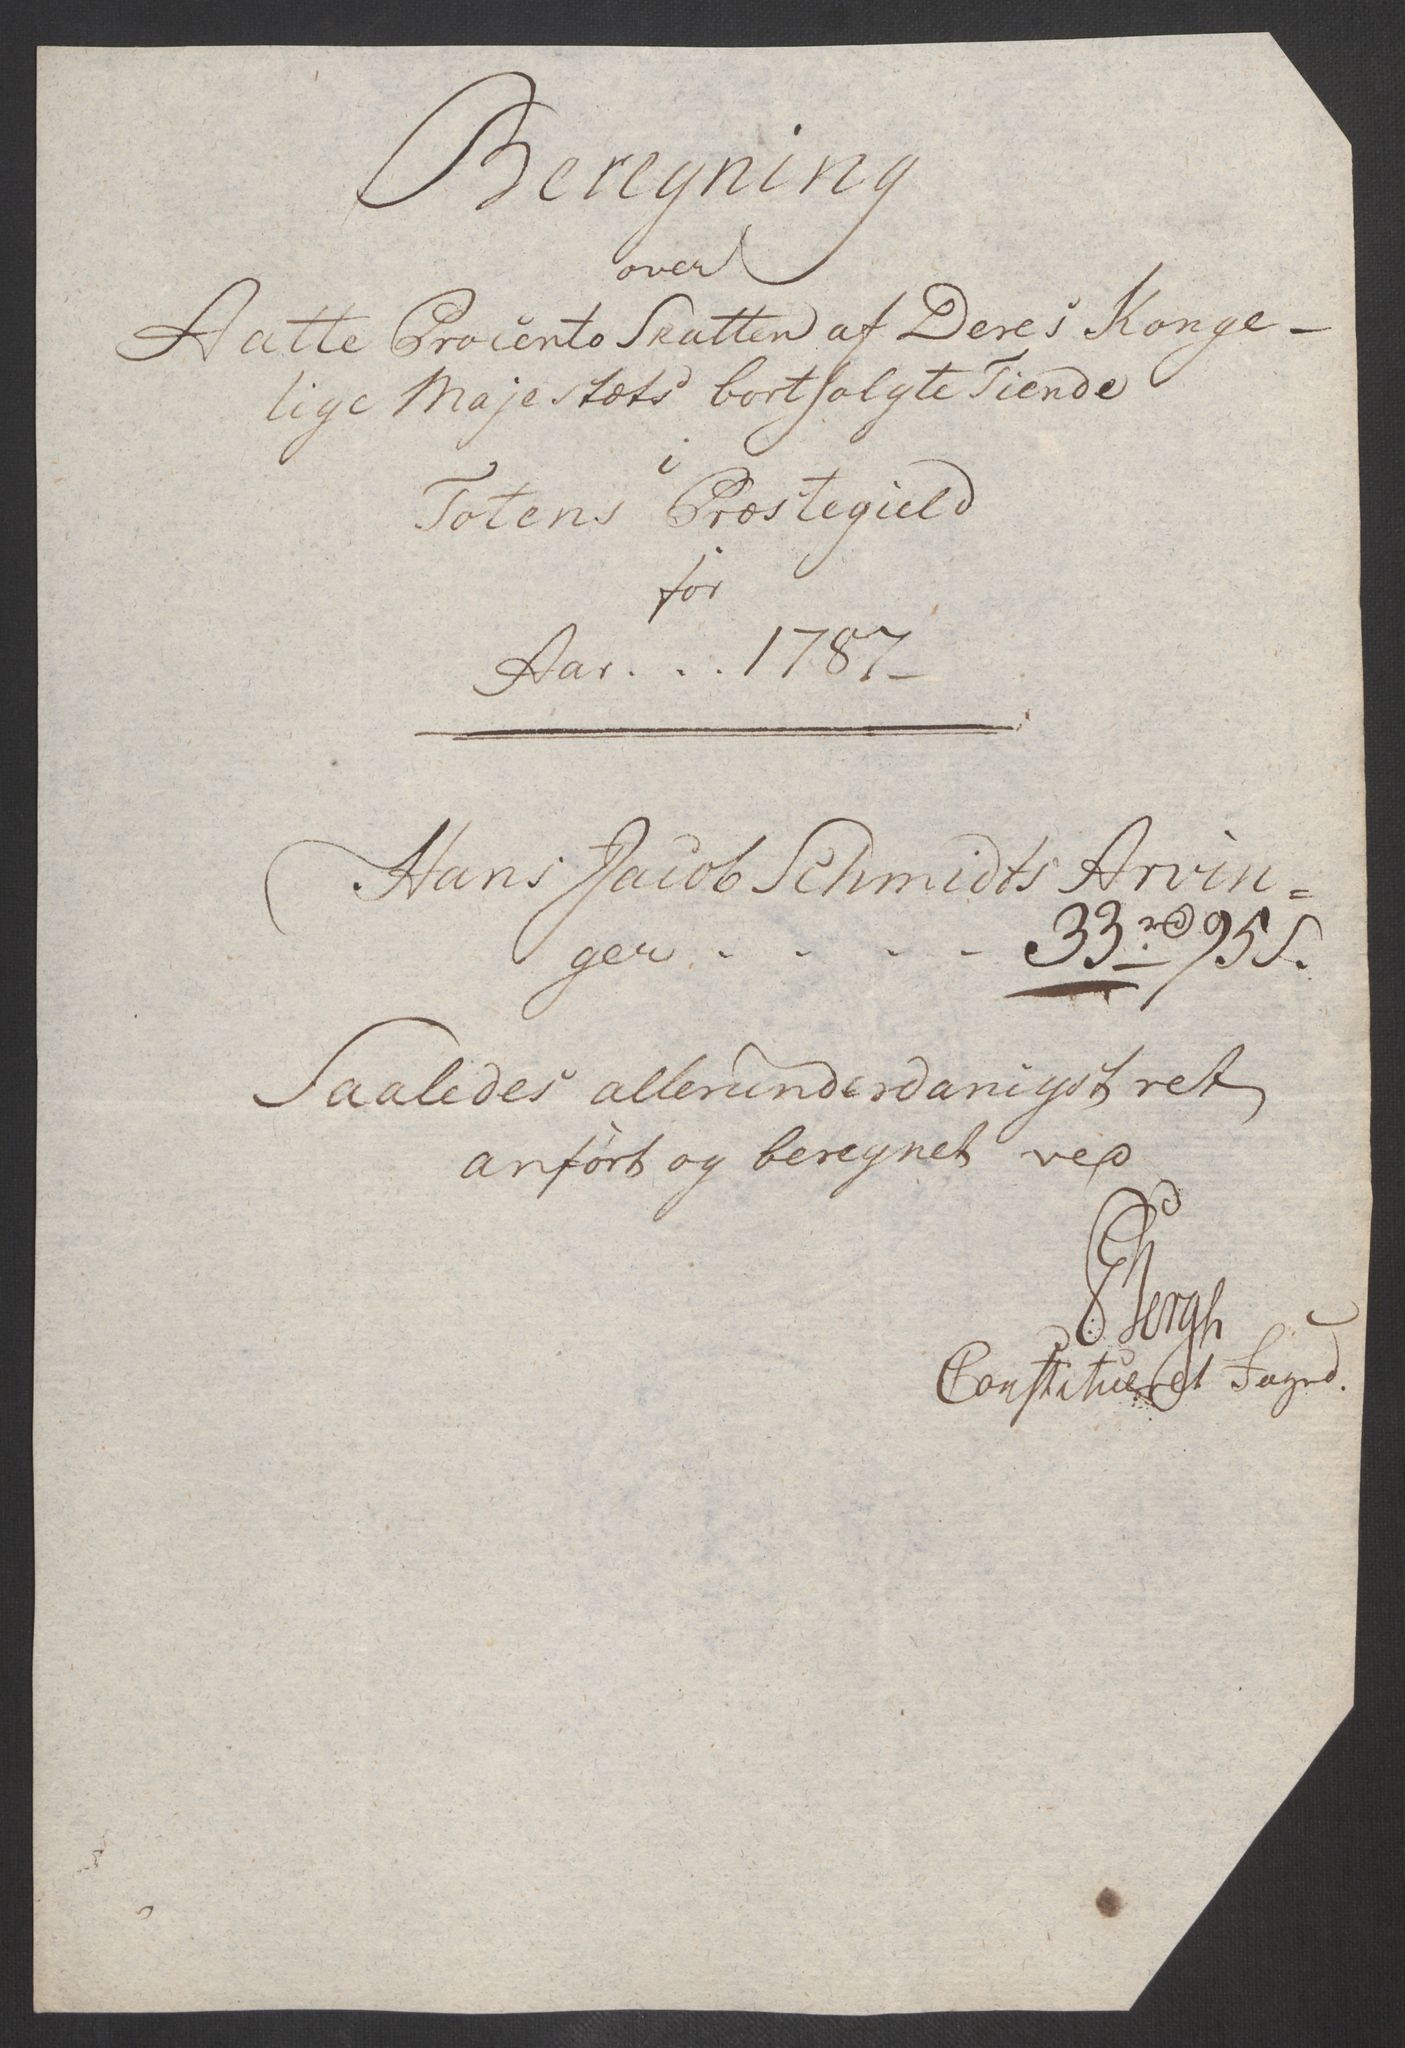 Beregning
over
Aatte Procento Skatten af Deres Konge-
lige Majestæts bortsolgte Tiende
i
Totens Præstegield
for
Aar... 1787
Hans Jacob Schmidts Arvin=
ger - - - - 33 rd 95 s.
Saaledes allerunderdanigst ret
anført og beregnet ved
Bergh
Constitueret